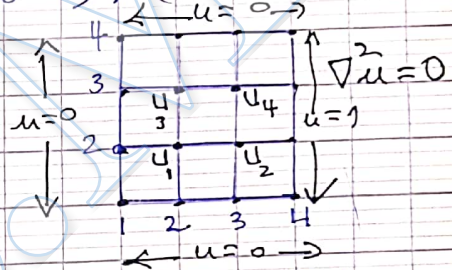 u = 0
4
3
2
u=0
u₃
u₄
u₁
u₂
u=1
∇²u = 0
1 2 3 4
u = 0